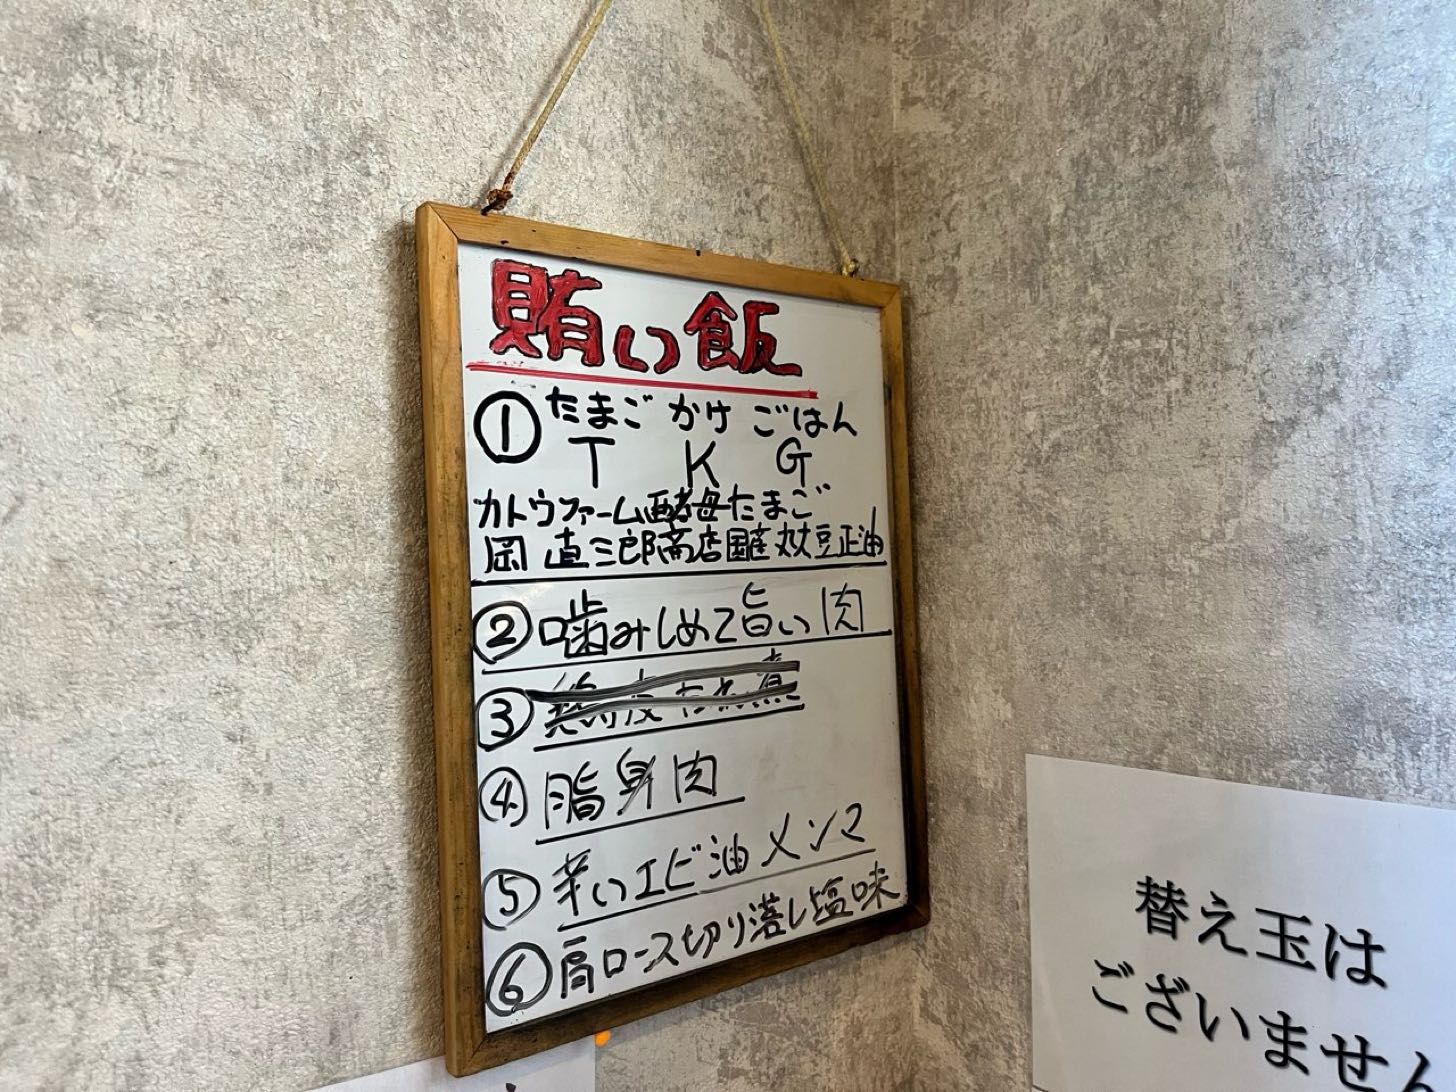 賄い飯
① たまご かけ ごはん
T K G
カトウファーム酵母たまご
岡 直三郎商店国産丸大豆正油
② 噛みしめて旨い肉
③
④ 脂身肉
⑤ 辛いエビ油メンマ
⑥ 肩ロース切り落し塩味
替え玉は
ございません